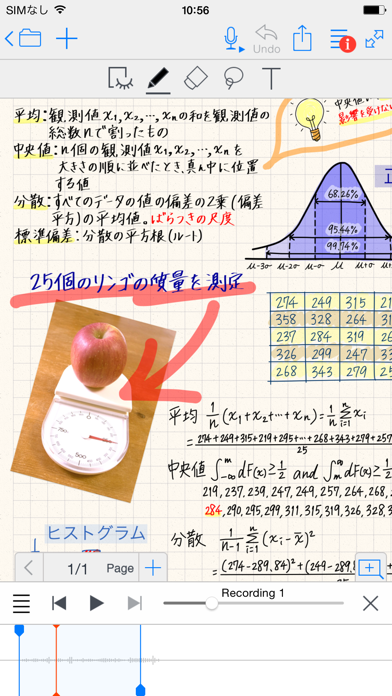 SIMなし 10:56
Undo
平均:観測値x₁,x₂,…,xₙの和を観測値の
総数nで割ったもの
中央値:n個の観測値x₁,x₂,…,xₙを
大きさの順に並べたとき,真ん中に位置
する値
分散:すべてのデータの値の偏差の2乗(偏差
平方)の平均値。ばらつきの尺度
標準偏差:分散の平方根(ルート)
中央値
影響を受けない
68.26%
95.44%
99.74%
μ-3σ μ-2σ μ-σ μ μ+σ μ+2σ
25個のリンゴの質量を測定
274 249 315 21
358 328 264 31
237 284 319 26
326 299 247 33
268 343 279 25
平均 1/n (x₁+x₂+…+xₙ)=1/n Σ xᵢ
n
i=1
=274+249+315+219+295+…+268+343+279+257
25
中央値 ∫ᵐ₋∞ dF(x)≥1/2 and ∫ dF(x)≥1/2
219,237,239,247,249,257,264,268,
284,290,295,299,311,315,319,326,328,3
ヒストグラム
分散 1/n-1 Σ (xᵢ-x̄)²
n
i=1
=(274-289.84)²+(249-289.8
1/1 Page
Recording 1